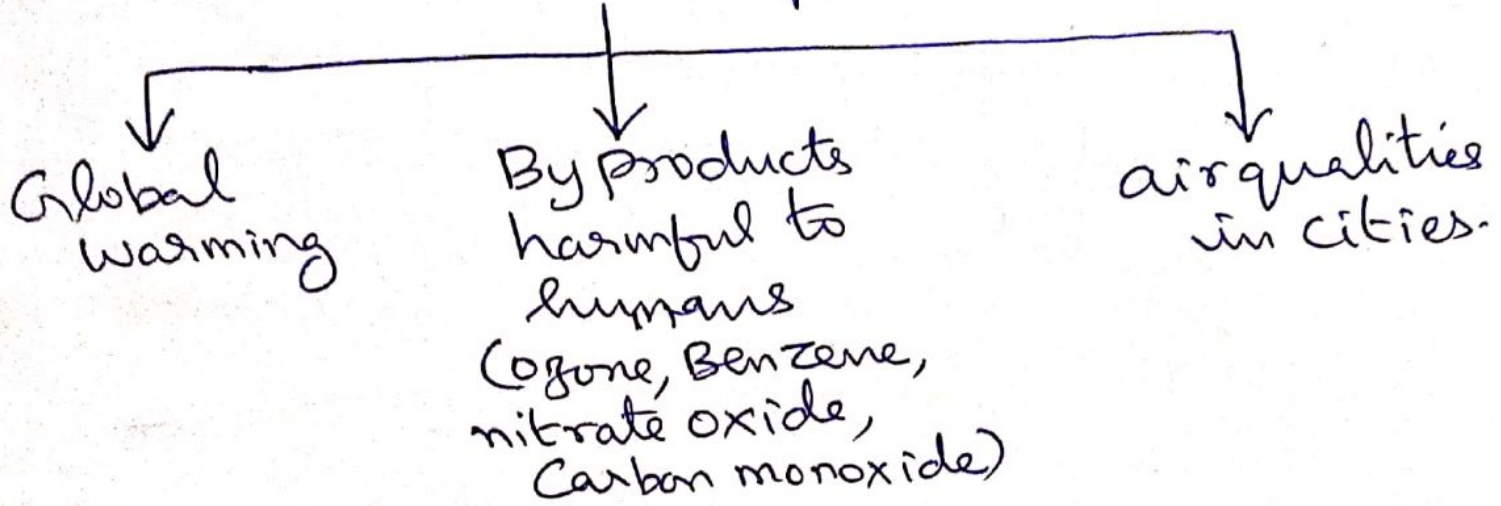 Global
warming
By products
harmful to
humans
(ozone, Benzene,
nitrate oxide,
Carbon monoxide)
airqualities
in cities.